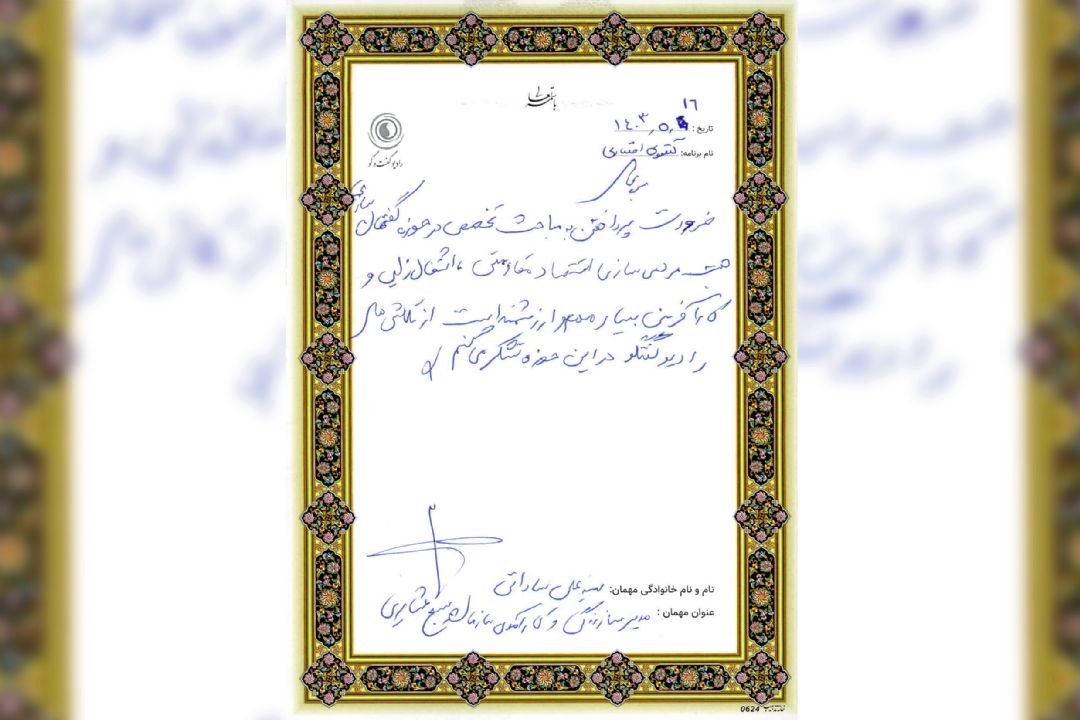 باسمه تعالی
رادیو گفت و گو
تاریخ : ۱۴۰۳/۵/۱۶
نام برنامه: گفتگوی اقتصادی
بسمه تعالی
ضرورت پرداختن به مباحث تخصصی در حوزه گفتمان سازی
جهت مردمی سازی اقتصاد مقاومتی ، اشتغال زایی و
کارآفرینی بسیار مهم و ارزشمند است از تلاش های
رادیو گفتگو در این حوزه تشکر می کنم
نام و نام خانوادگی مهمان: سید علی ساداتی
عنوان مهمان : مدیر سازندگی و سازمان بسیج عشایری
0624